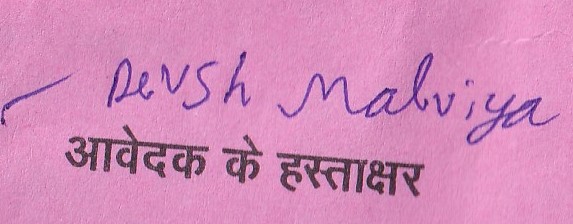 Devsh Malviya
आवेदक के हस्ताक्षर